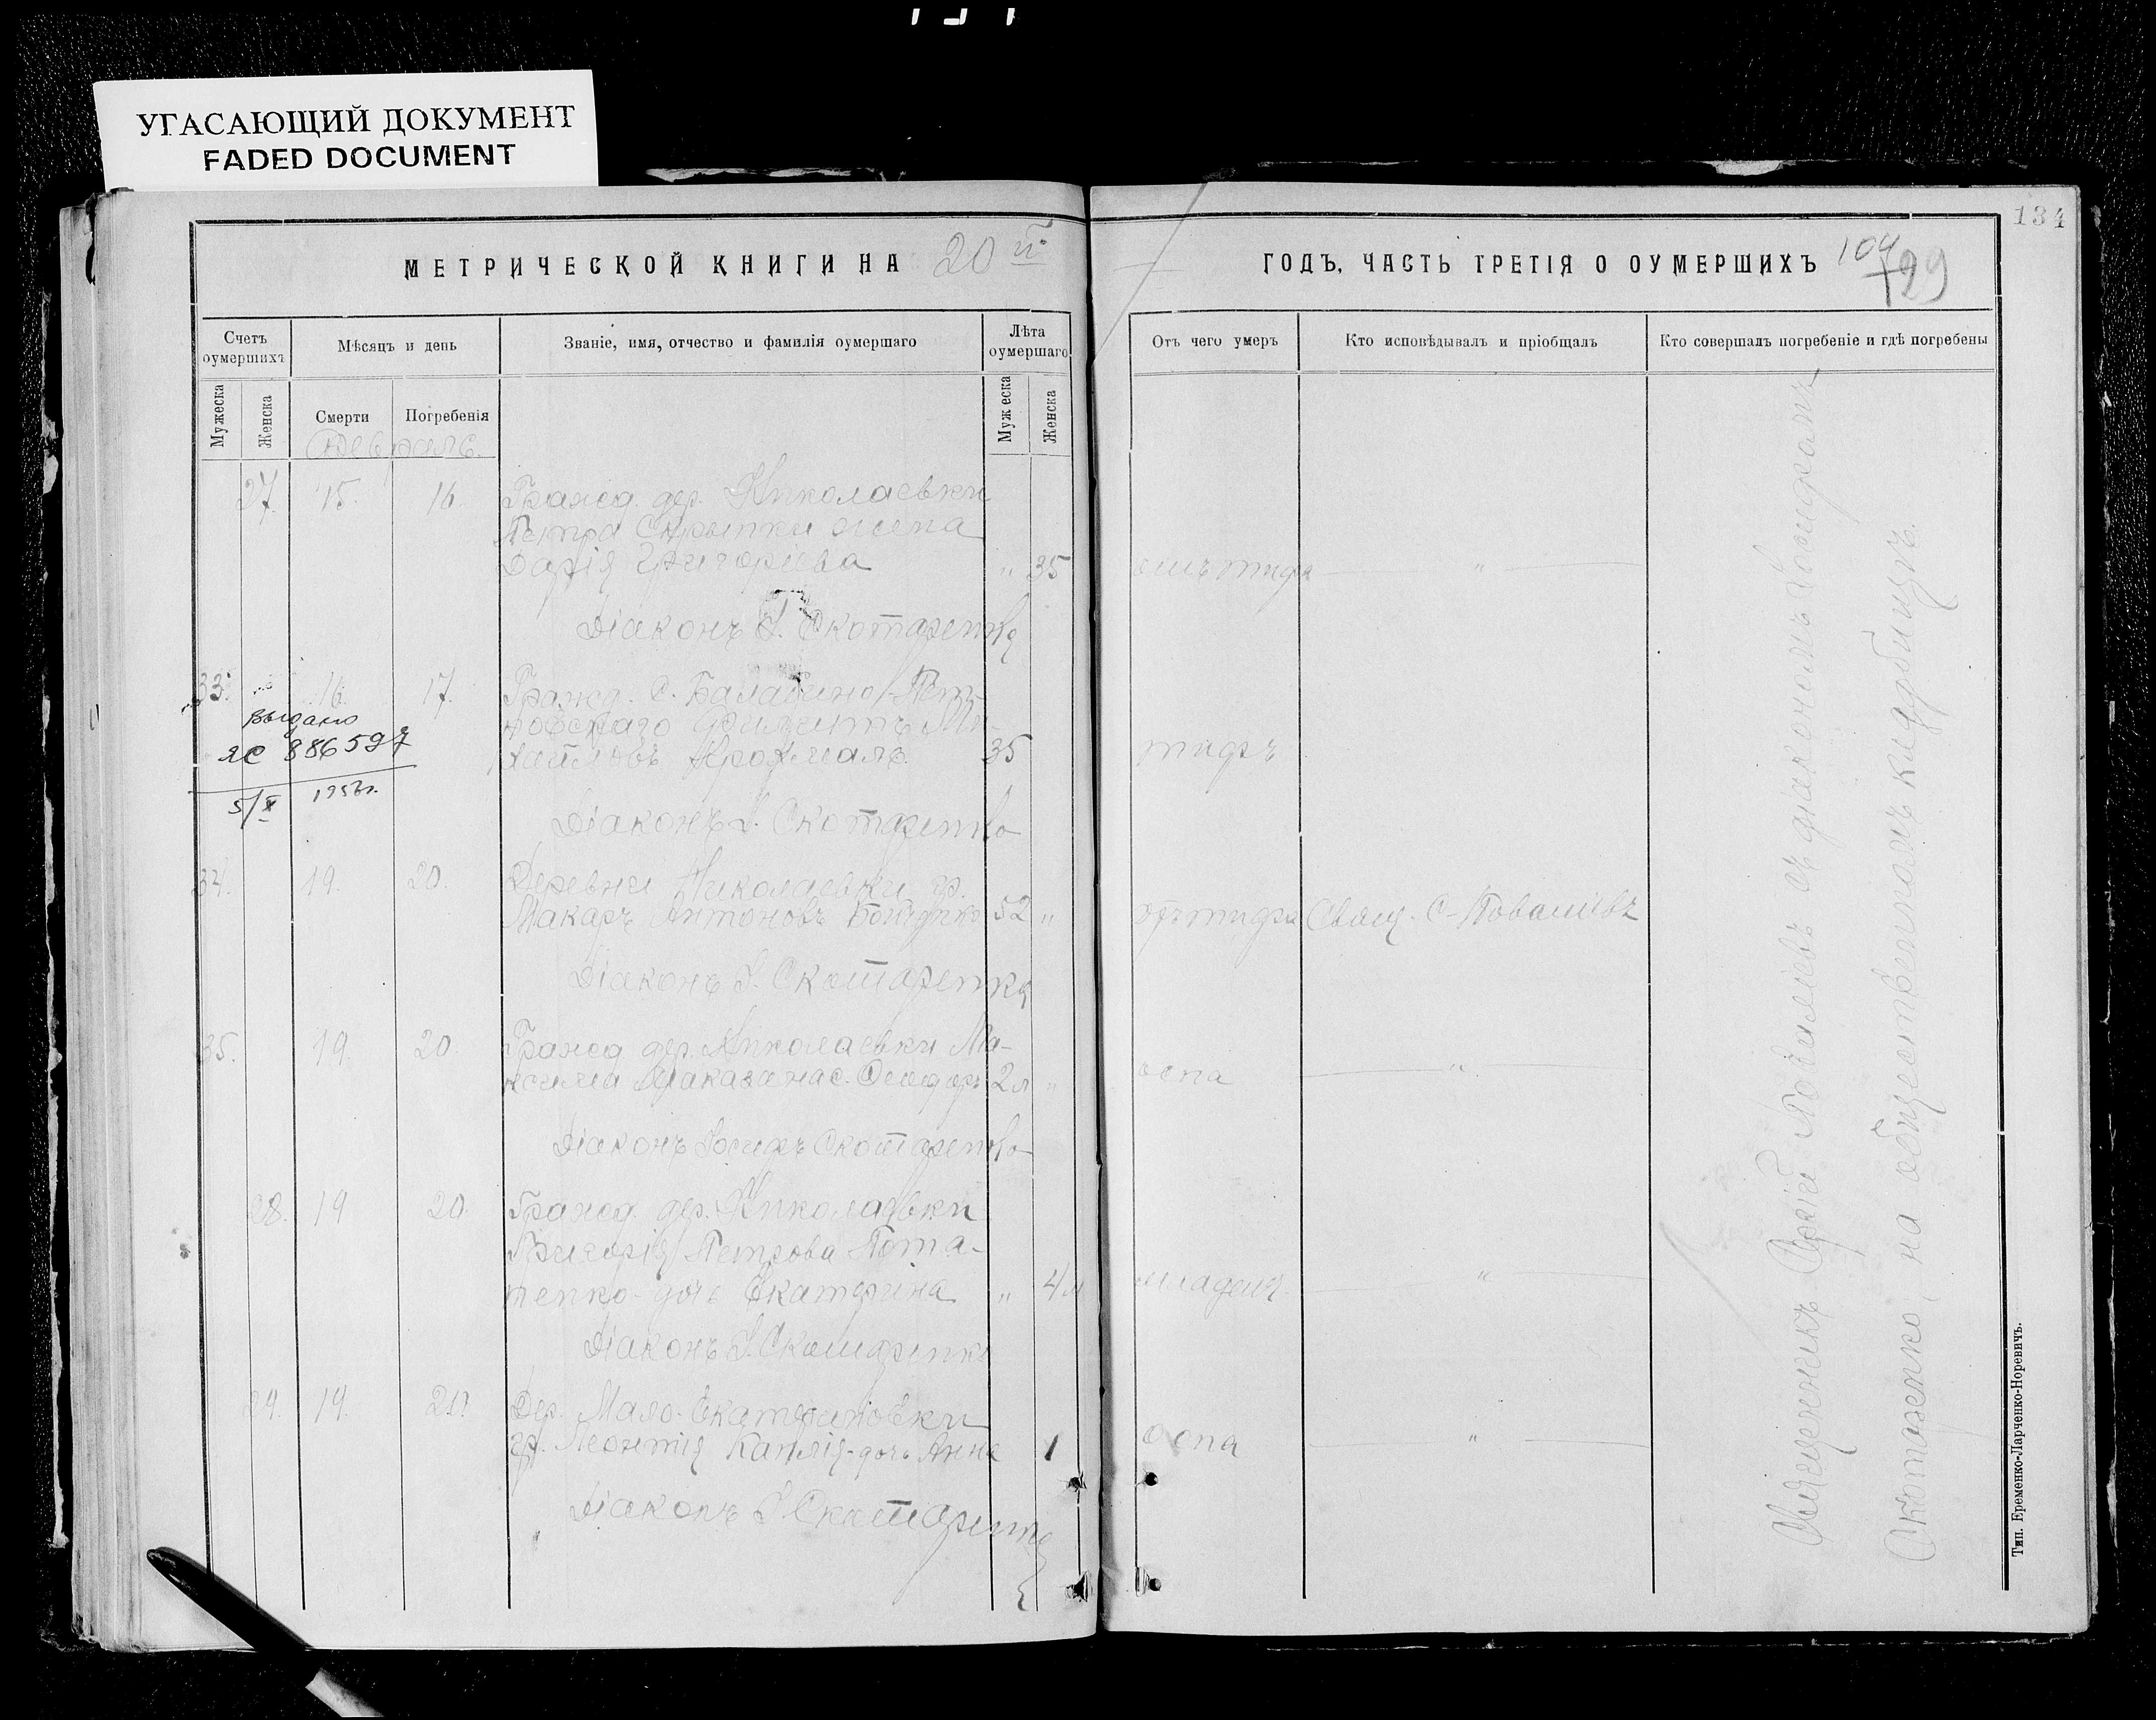 УГАСАЮЩИЙ ДОКУМЕНТ
FADED DOCUMENT
МЕТРИЧЕСКОЙ КНИГИ НА 20 й
Счетъ оумершихъ
Мѣсяцъ и день
Званіе, имя, отчество и фамилія оумершаго
Лѣта оумершаго
Мужеска
Женска
Смерти
Погребенія
Мужеска
Женска
Февраль.
27. 15. 16. Гражд. дер. Николаевки
Петра Скрыпки жена
Дарія Григоріева " 35
Діаконъ І. Скотаренко
33. 16. 17. Гражд. с. Балабино-Пет-
ровскаго Филиппъ Ми-
хайловъ 35
Выдано
ЯС 886597
5/X 1956г.
Діаконъ І. Скотаренко
34. 19. 20. Деревни Николаевки гр.
Макаръ Антоновъ 52 "
Діаконъ І. Скотаренко
35. 19. 20. Гражд. дер. Николаевки Ма-
ксима с. Феодоръ 2 л "
Діаконъ Іосифъ Скотаренко
28. 19 20. Гражд. дер. Николаевки
Григорія Петрова Пота-
пенко-дочь Екатерина " 4 м
Діаконъ І. Скотаренко
29. 19. 20. Дер. Мало-Екатериновки
гр. Леонтія Каплія-дочь Анна 1
Діаконъ І. Скотаренко
134
ГОДЪ, ЧАСТЬ ТРЕТІЯ О ОУМЕРШИХЪ
104
129
Отъ чего умеръ
Кто исповѣдывалъ и пріобщалъ
Кто совершалъ погребеніе и гдѣ погребены
отъ тифа "
тифъ
отъ тифа Свящ. С.
оспа "
младен. "
оспа "
Священникъ Сергій съ діакономъ
Скотаренко, на общественномъ кладбищѣ.
Тип. Еременко-Ларченко-Норевичъ.